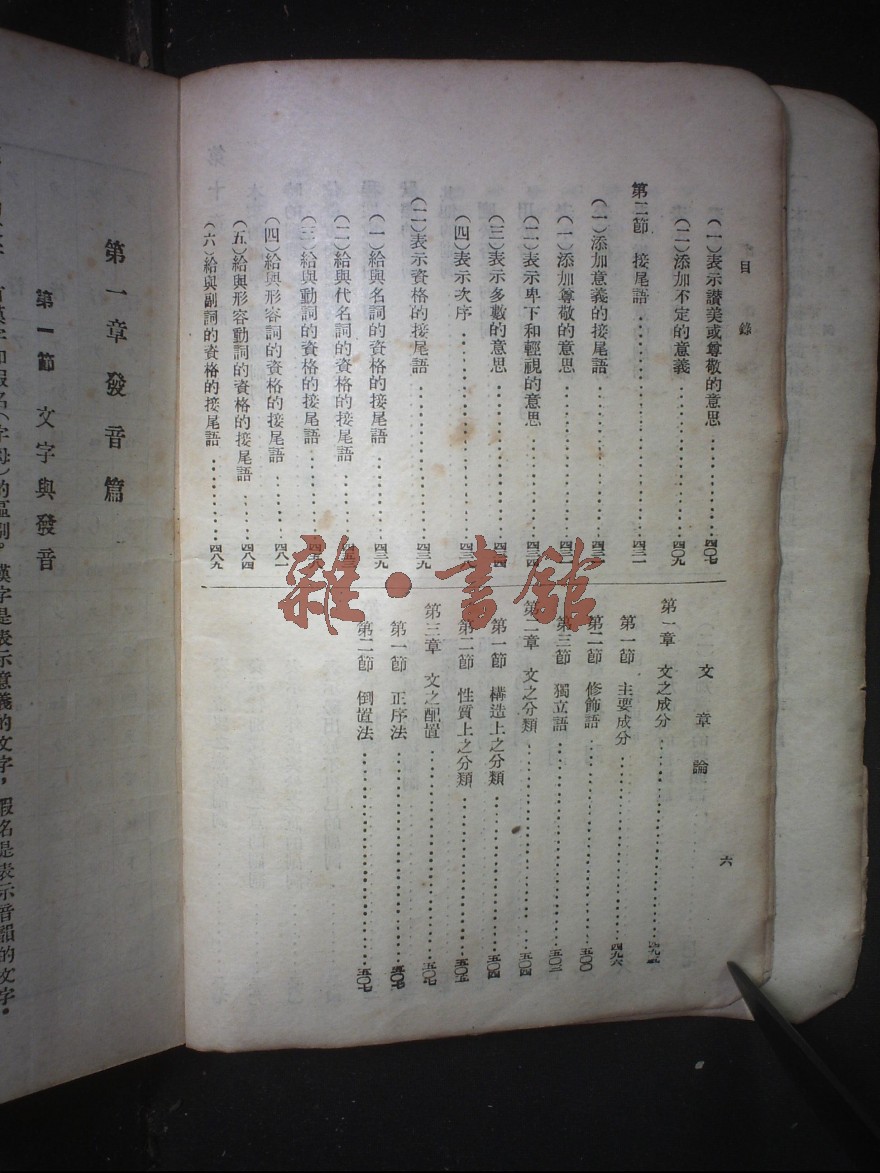 目錄
(一)表示讃美或尊敬的意思……四〇七
(二)添加不定的意義……四〇九
第二節 接尾語……四三一
(一)添加意義的接尾語……四三一
(一)添加尊敬的意思……四三一
(二)表示卑下和輕視的意思……四三四
(三)表示多數的意思……
(四)表示次序……
(二)表示資格的接尾語……四三九
(一)給與名詞的資格的接尾語……四三九
(二)給與代名詞的資格的接尾語……
(三)給與動詞的資格的接尾語……
(四)給與形容詞的資格的接尾語……四八一
(五)給與形容動詞的資格的接尾語……四八四
(六)給與副詞的資格的接尾語……四八九
文章論
第一章 文之成分……四九五
第一節 主要成分……四九六
第二節 修飾語……五〇〇
第三節 獨立語……五〇二
第二章 文之分類……五〇四
第一節 構造上之分類……五〇四
第二節 性質上之分類……五〇五
第三章 文之配置……五〇七
第一節 正序法……五〇七
第二節 倒置法……五〇七
六
雜·書館
第一章 發音篇
第一節 文字與發音
的區別。漢字是表示意義的文字，假名是表示音韻的文字。